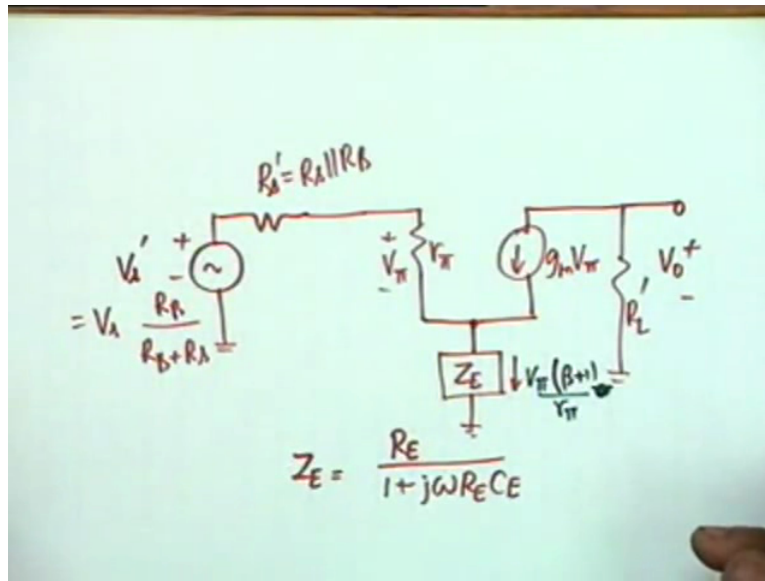 Rs' = Rs||RB
Vs' + - ~
= Vs RB / (RB + Rs)
+ Vπ - rπ
gmVπ
RL'
V0 + -
ZE
↓ Vπ(β+1) / rπ
ZE = RE / (1 + jωRECE)